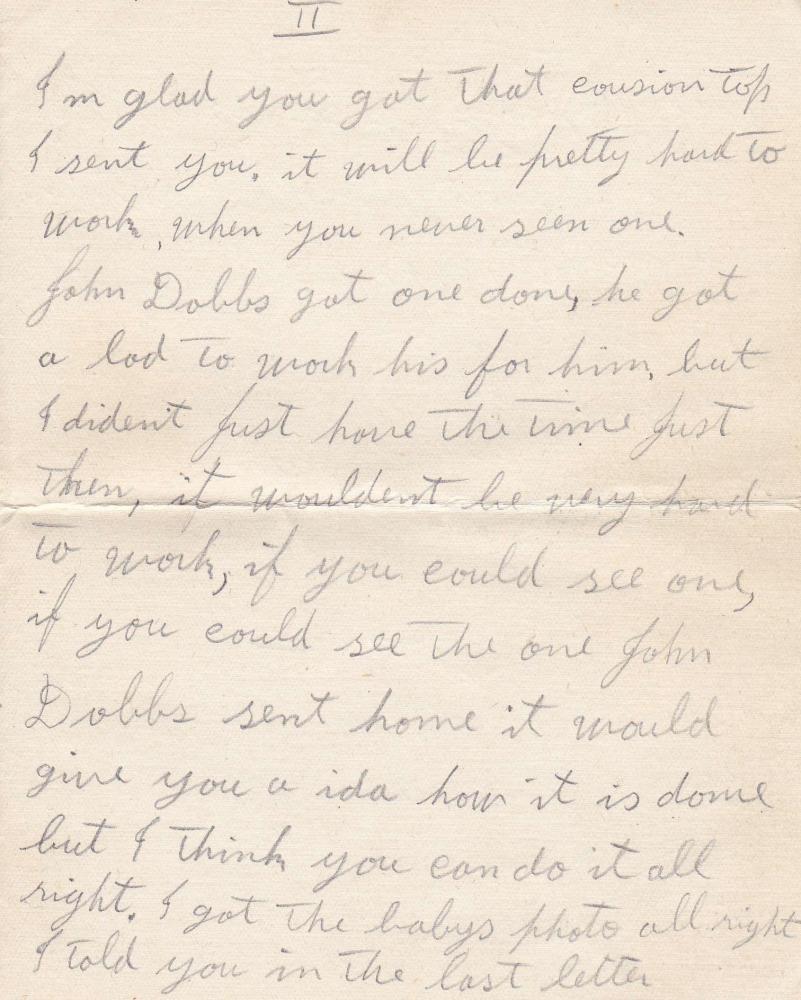 II
I'm glad you got that cousion top
I sent you. it will be pretty hard to
work, when you never seen one.
John Dobbs got one done, he got
a lad to work his for him, but
I dident just have the time just
then, it wouldent be very hard
to work, if you could see one,
if you could see the one John
Dobbs sent home it would
give you a ida how it is done
but I think you can do it all
right. I got the babys photo all right
I told you in the last letter